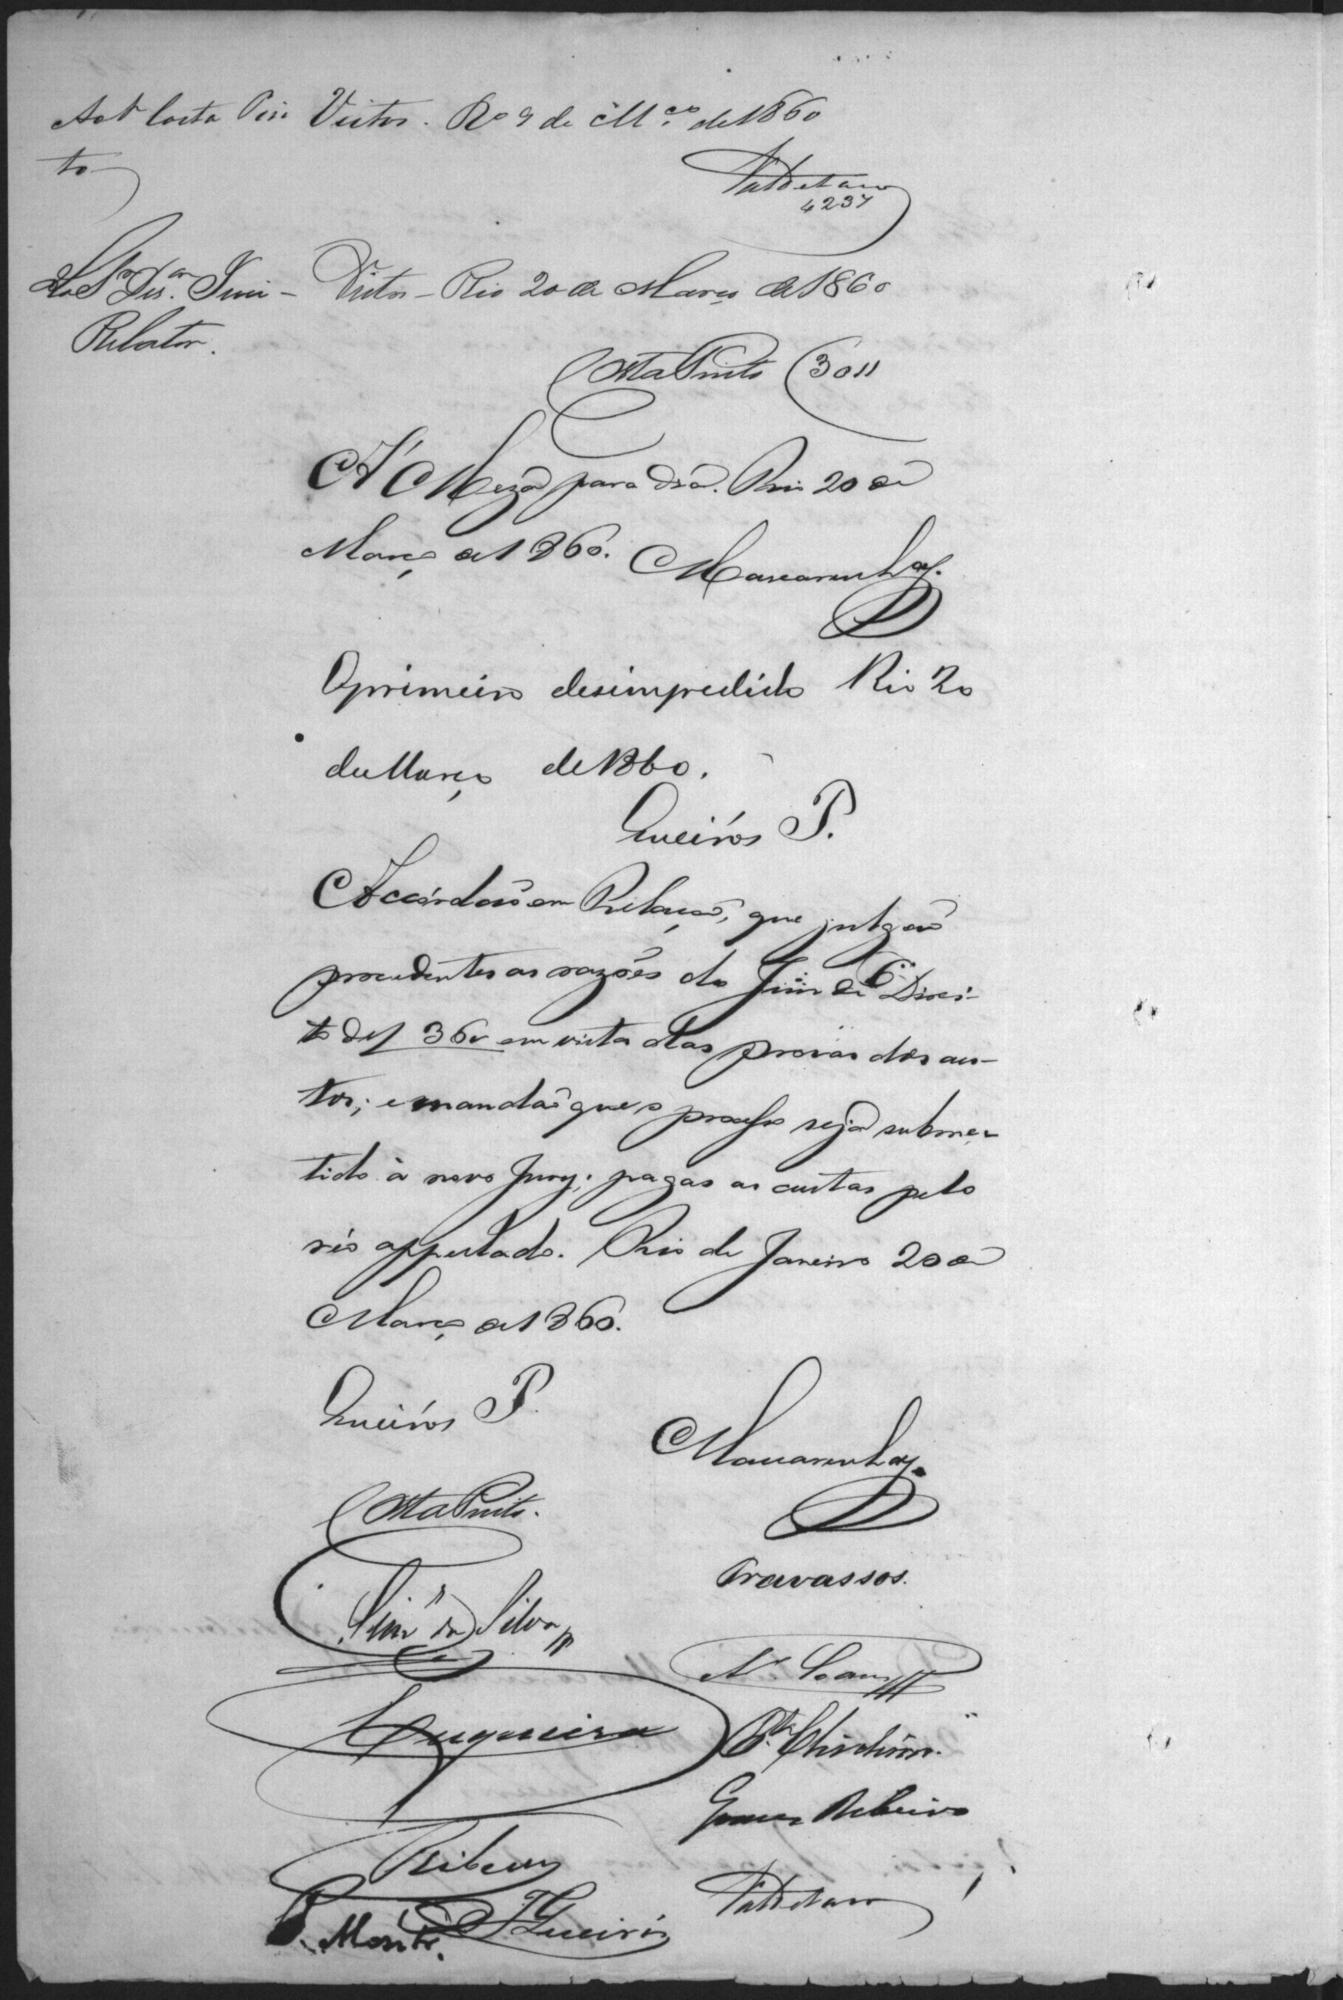 Ao Sr Costa Pin- Vistos. Rio 9 de Mço de 1860
to
Valdetaro
4237
Ao Sr Des.or Juiz - Vistos - Rio 20 de Março de 1860
Relator.
Costa Pinto (3011
A' Meza para dia. Rio 20 de
Março de 1860. Mascarenhas.
O primeiro desimpedido Rio 20
de Março de 1860.
Queirós P.
Accórdaõ em Relaçaõ, que julgaõ
procedentes as razões do Juiz de Direi-
to de f 36v em vista das provas dos au-
tos; e mandaõ que o processo seja subme-
tido à novo Jury; pagas as custas pelo
réo appellado. Rio de Janeiro 20 de
Março de 1860.
Queirós P.
Mascarenhas.
Costa Pinto.
Travassos.
da Silva
Cerqueira
Gomes Ribeiro
Ribeiro
Valdetaro
Queirós